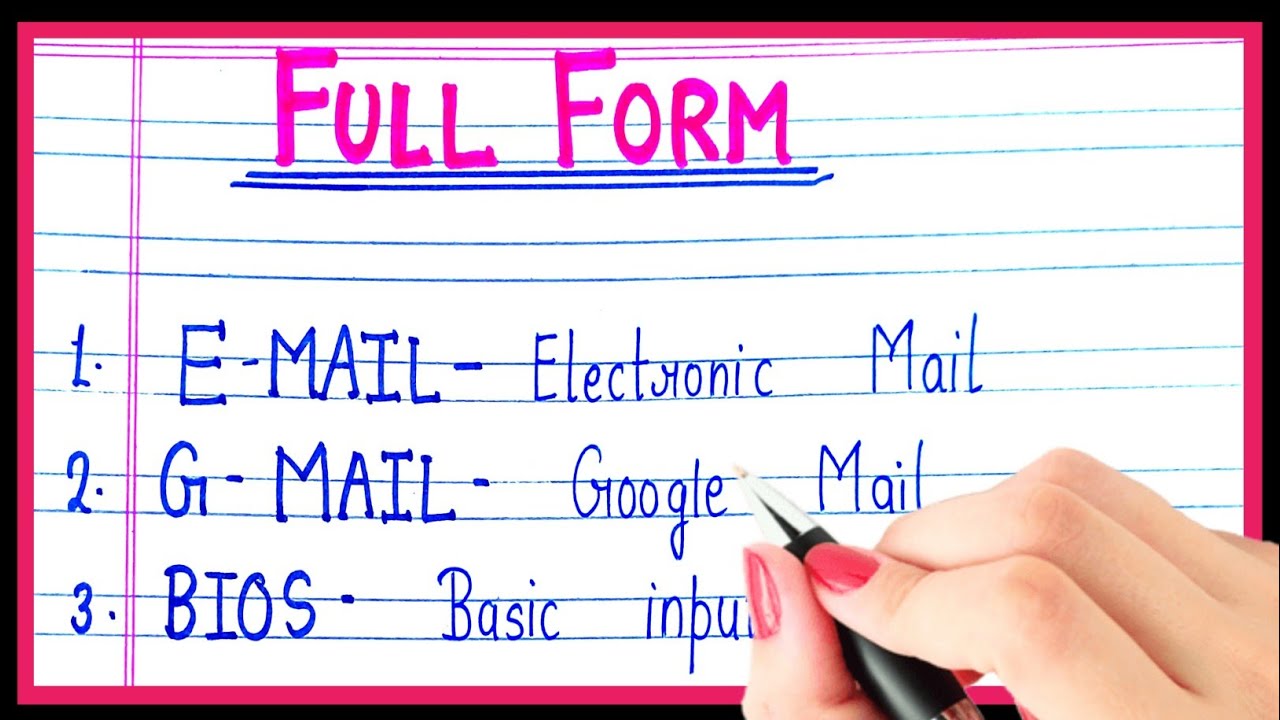 FULL FORM
1. E-MAIL - Electronic Mail
2. G-MAIL - Google Mail
3. BIOS - Basic